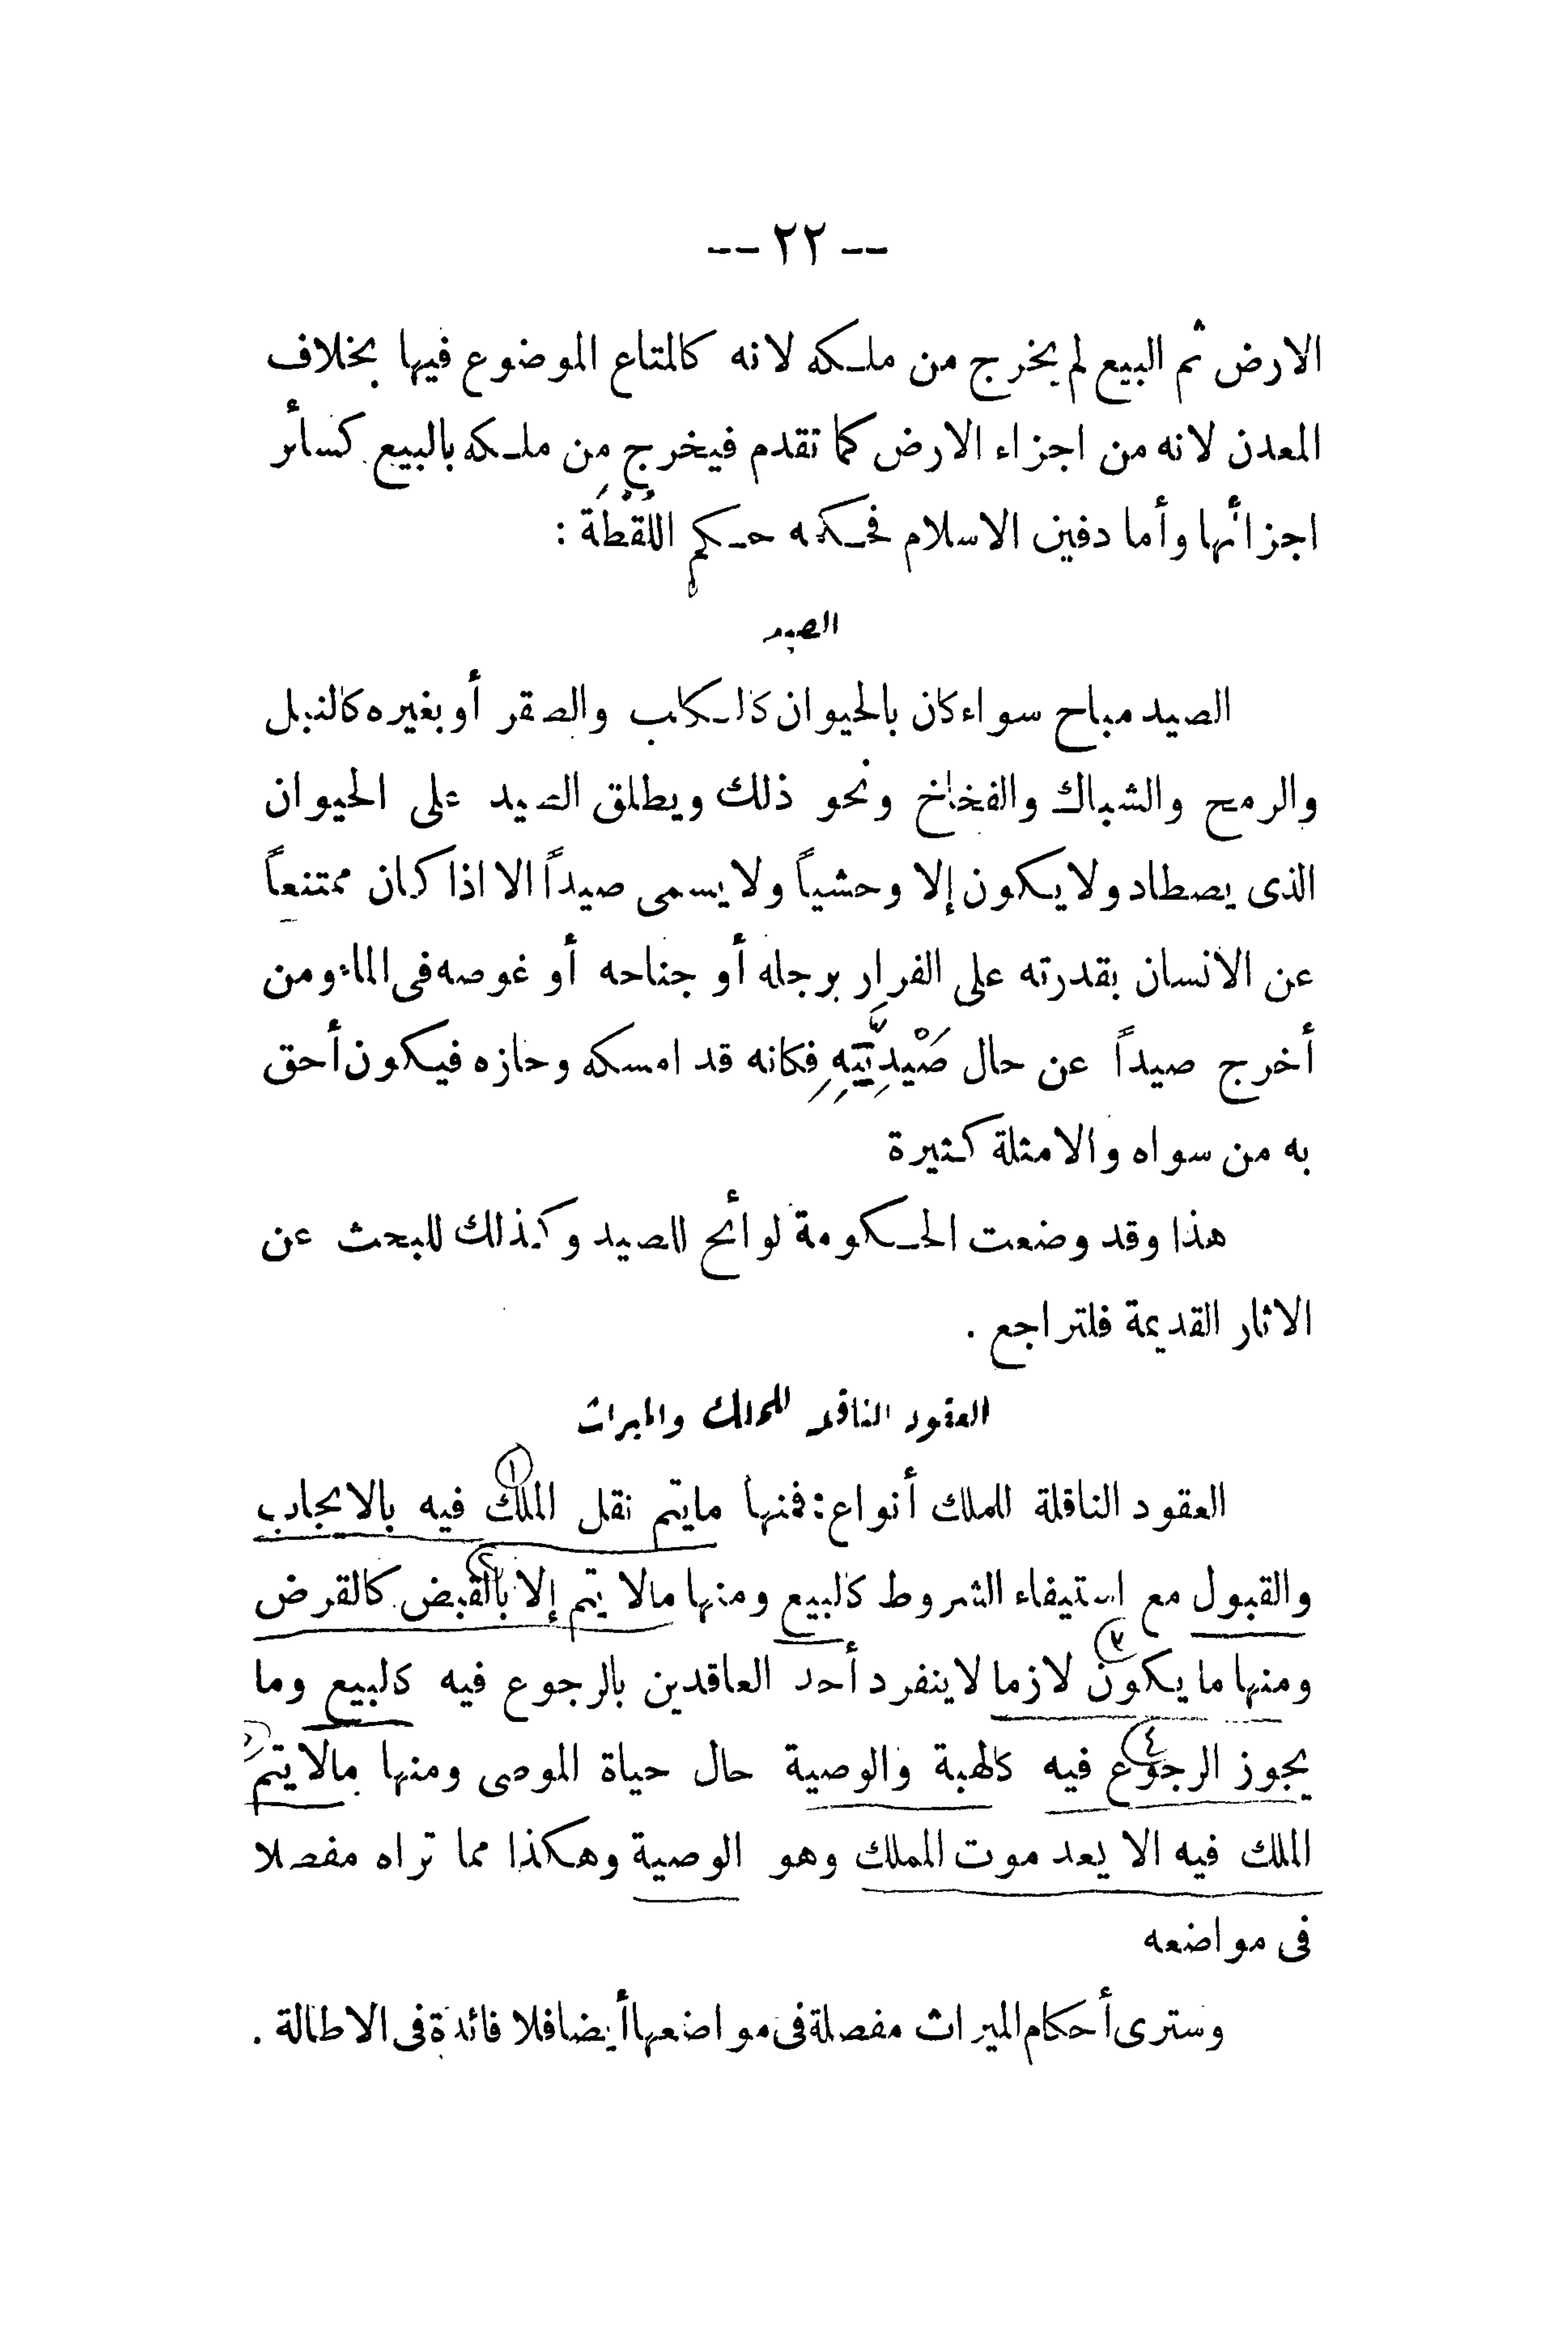 -- ٢٢ --
الارض ثم البيع لم يخرج من ملكه لانه كالمتاع الموضوع فيها بخلاف
المعدن لانه من اجزاء الارض كما تقدم فيخرج من ملكه بالبيع كسائر
اجزائها وأما دفين الاسلام فحكمه حكم اللُقْطَة :
الصيد
الصيد مباح سواء كان بالحيوان كالكلب والصقر أو بغيره كالنبل
والرمح والشباك والفخاخ ونحو ذلك ويطلق الصيد على الحيوان
الذى يصطاد ولا يكون إلا وحشياً ولا يسمى صيداً الا اذا كان ممتنعاً
عن الانسان بقدرته على الفرار برجله أو جناحه أو غوصه فى الماء ومن
أخرج صيداً عن حال صَيْدِيَّتِهِ فكانه قد امسكه وحازه فيكون أحق
به من سواه والامثلة كثيرة
هذا وقد وضعت الحكومة لوائح للصيد وكذلك للبحث عن
الاثار القديمة فلتراجع .
العقود الناقلة للملك والميراث
العقود الناقلة للملك أنواع : فمنها مايتم نقل الملك فيه بالايجاب
١
والقبول مع استيفاء الشروط كالبيع ومنها مالا يتم إلا بالقبض كالقرض
٢
ومنها ما يكون لازما لا ينفرد أحد العاقدين بالرجوع فيه كالبيع وما
٣
يجوز الرجوع فيه كالهبة والوصية حال حياة الموصى ومنها مالا يتم
٤
الملك فيه الا يعد موت المملك وهو الوصية وهكذا مما تراه مفصلا
فى مواضعه
وسترى أحكام الميراث مفصلة فى مواضعها أيضا فلا فائدة فى الاطالة .